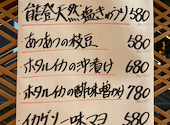 能登天然塩きゅうり 580
あつあつの枝豆 580
ホタルイカの沖漬け 680
ホタルイカの酢味噌かけ 780
イカゲソ一味マヨ 680